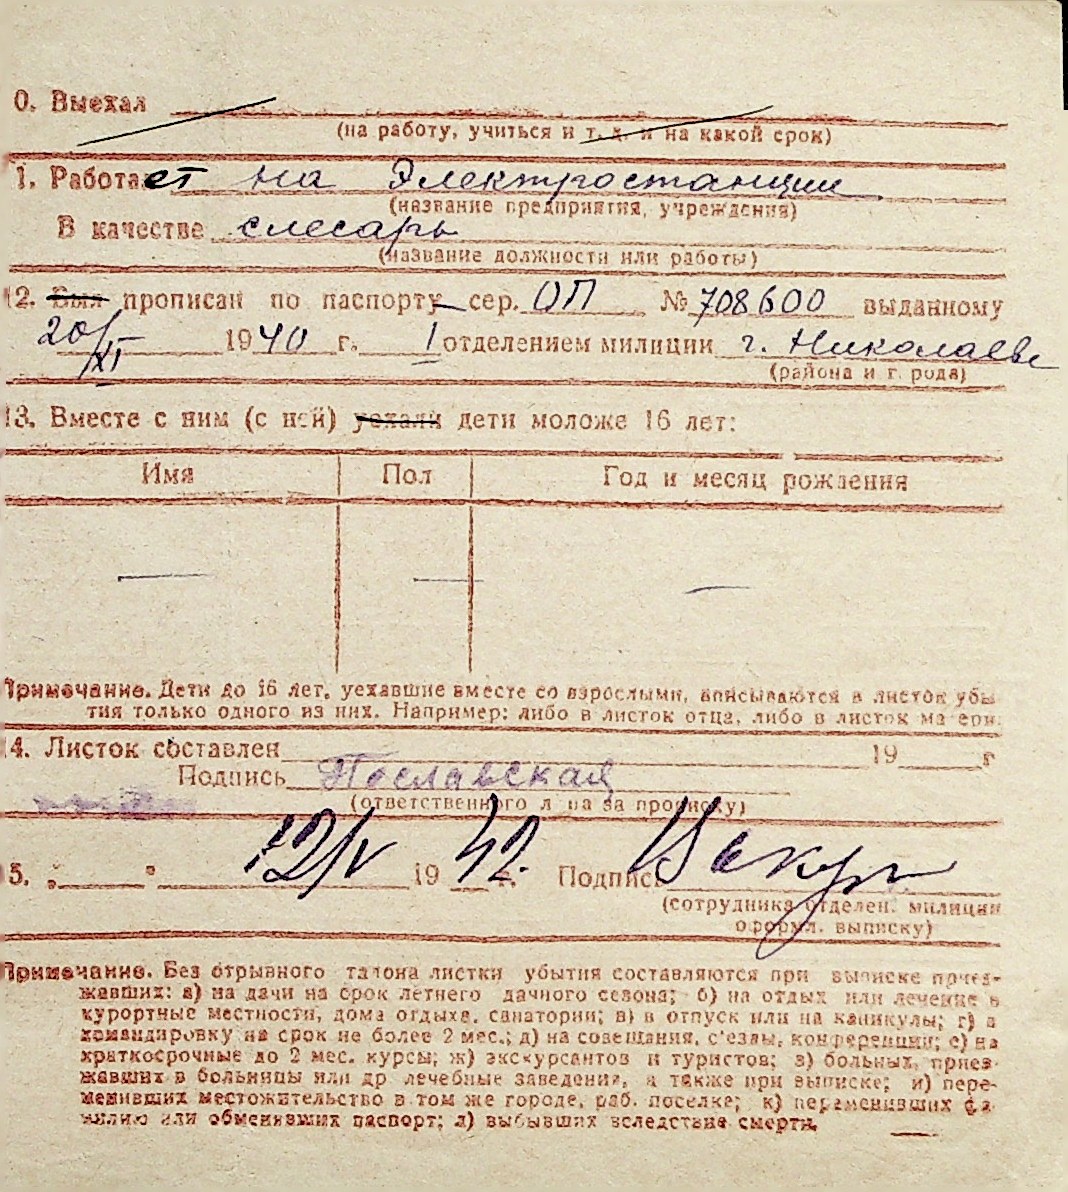 0. Выехал
(на работу, учиться и т. д. и на какой срок)
1. Работает на Электростанции
(название предприятия, учреждения)
В качестве слесарь
(название должности или работы)
12. Был прописан по паспорту сер. ОП № 708600 выданному
20/XI 1940 г. I отделением милиции г. Николаеве
(района и г. рода)
13. Вместе с ним (с ней) уехали дети моложе 16 лет:
Имя Пол Год и месяц рождения
Примечание. Дети до 16 лет, уехавшие вместе со взрослыми, вписываются в листок убы
тия только одного из них. Например: либо в листок отца, либо в листок матери.
4. Листок составлен 19 г
Подпись Пославская
(ответственного лица за прописку)
5. „ " 12/V 1942. Подпись
(сотрудника отделен. милиции
оформл. выписку)
Примечание. Без отрывного талона листки убытия составляются при выписке приез-
жавших: а) на дачи на срок летнего дачного сезона; б) на отдых или лечение в
курортные местности, дома отдыха, санатории; в) в отпуск или на каникулы; г) в
командировку на срок не более 2 мес.; д) на совещания, с'езды, конференции; е) на
краткосрочные до 2 мес. курсы; ж) экскурсантов и туристов; з) больных, приез-
жавших в больницы или др лечебные заведения, а также при выписке; и) пере-
менивших местожительство в том же городе, раб. поселке; к) переменивших фа-
милию или обменивших паспорт; л) выбывших вследствие смерти.